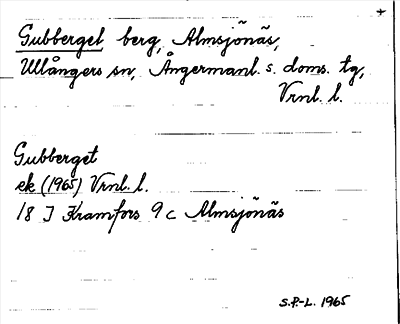 Gubberget berg, Almsjönäs,
Ullångers sn, Ångermanl. s. doms. tg,
Vrnl. l.
Gubberget
ek (1965) Vrnl. l.
18 J Kramfors 9 c Almsjönäs
S.P.-L. 1965